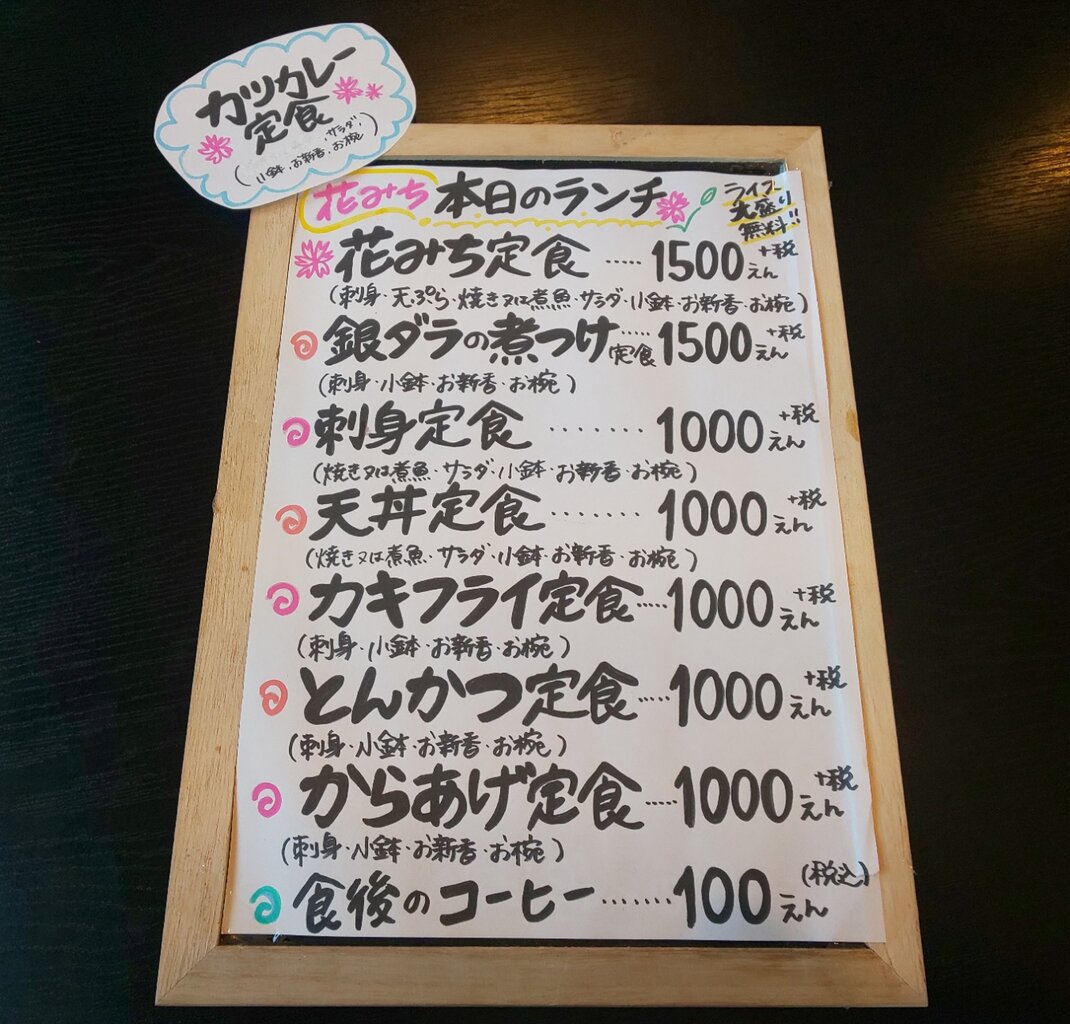 カツカレー
定食
(小鉢,お新香,お椀,サラダ,)
花みち 本日のランチ
ライス
大盛り
無料!!
花みち定食 ····· 1500えん +税
(刺身·天ぷら·焼き又は煮魚·サラダ·小鉢·お新香·お椀)
銀ダラの煮つけ定食 ····· 1500えん +税
(刺身·小鉢·お新香·お椀)
刺身定食 ······· 1000えん +税
(焼き又は煮魚·サラダ·小鉢·お新香·お椀)
天丼定食 ······· 1000えん +税
(焼き又は煮魚·サラダ·小鉢·お新香·お椀)
カキフライ定食 ····· 1000えん +税
(刺身·小鉢·お新香·お椀)
とんかつ定食 ····· 1000えん +税
(刺身·小鉢·お新香·お椀)
からあげ定食 ····· 1000えん +税
(刺身·小鉢·お新香·お椀)
食後のコーヒー ······· 100えん (税込)